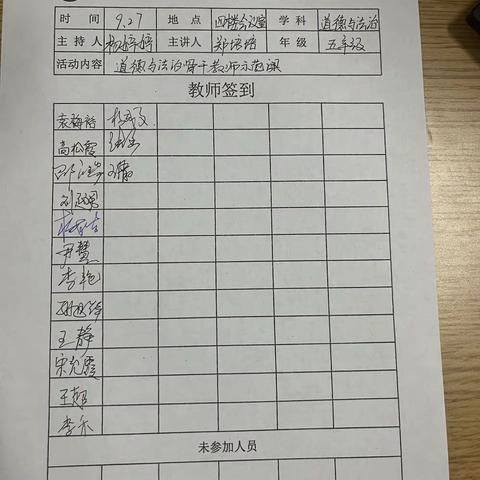 时 间 9.27 地 点 四楼会议室 学 科 道德与法治
主 持 人 杨婷婷 主讲人 郑培培 年 级 五年级
活动内容 道德与法治骨干教师示范课
教师签到
袁梅裕
高松霞
尹慧
李艳
王静
宋光霞
王超
李永
未参加人员